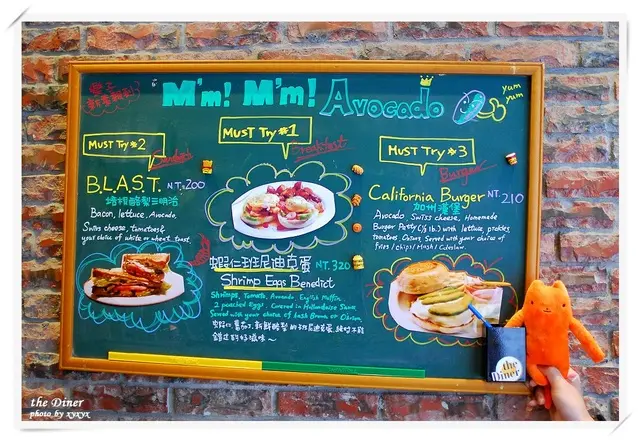 M'm! M'm! Avocado
yum
yum
Must Try #2
Sandwich
B.L.A.S.T. N.T.$200
培根酪梨三明治
Bacon, lettuce, Avocado,
Swiss cheese, tomatoes &
your choice of white or wheat toast.
Must Try #1
Breakfast
蝦仁班尼迪克蛋 NT.320
Shrimp Eggs Benedict
Shrimps, Tomato, Avocado, English Muffin
2 poached Eggs. Covered in Hollandaise Sauce
Served with your choice of Hash Browns or
新鮮酪梨
錯過的好滋味~
Must Try #3
Burger
California Burger NT.210
加州漢堡
Avocado, Swiss cheese, Homemade
Burger Patty (1/3 lb.) with lettuce, pickles,
tomatoes, Onions. Served with your choice of
fries / chips / Mash / Coleslaw.
the
Diner
the Diner
photo by xyxyx